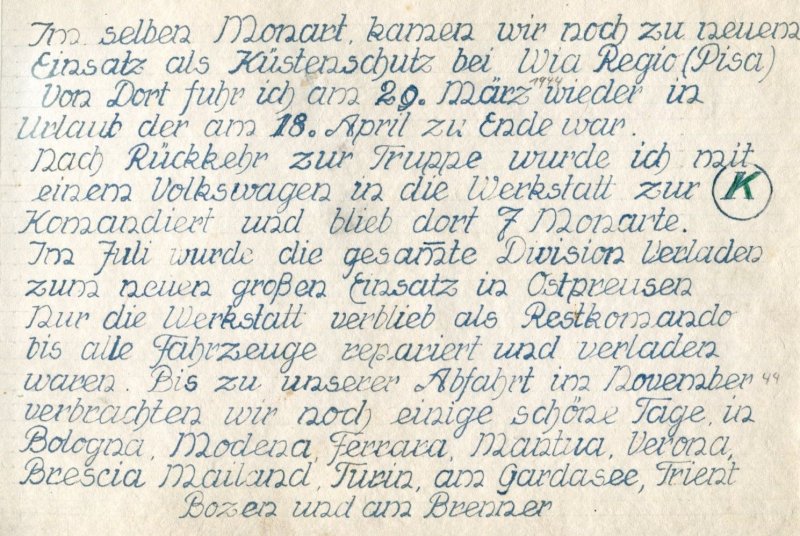 Im selben Monart, kamen wir noch zu neuem
Einsatz als Küstenschutz bei Wia Regio (Pisa)
Von Dort fuhr ich am 29. März 1944 wieder in
Urlaub der am 18. April zu Ende war.
Nach Rückkehr zur Truppe wurde ich mit
einem Volkswagen in die Werkstatt zur K
Komandiert und blieb dort 7 Monarte.
Im Juli wurde die gesamte Division Verladen
zum neuen großen Einsatz in Ostpreusen
Nur die Werkstatt verblieb als Restkomando
bis alle Fahrzeuge repariert und verladen
waren. Bis zu unserer Abfahrt im November 44
verbrachten wir noch einige schöne Tage, in
Bologna, Modena, Ferrara, Mantua, Verona,
Brescia Mailand, Turin, am Gardasee, Trient
Bozen und am Brenner